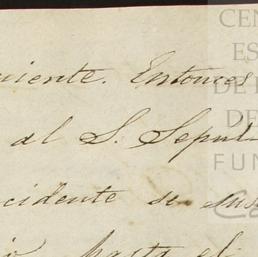 uiente. Entonces
al S. Sepul
cidente se sus
hasta el
CEN
ES
DE
DE
FUN